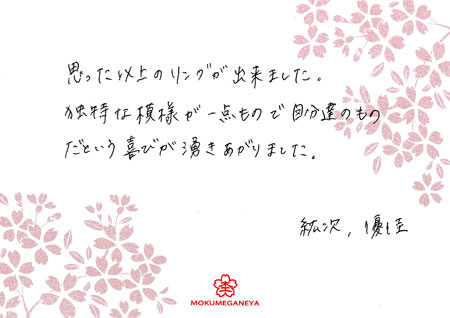 思った以上のリングが出来ました。
独特な模様が一点もので自分達のもの
だという喜びが湧きあがりました。
紘次, 優佳
MOKUMEGANEYA